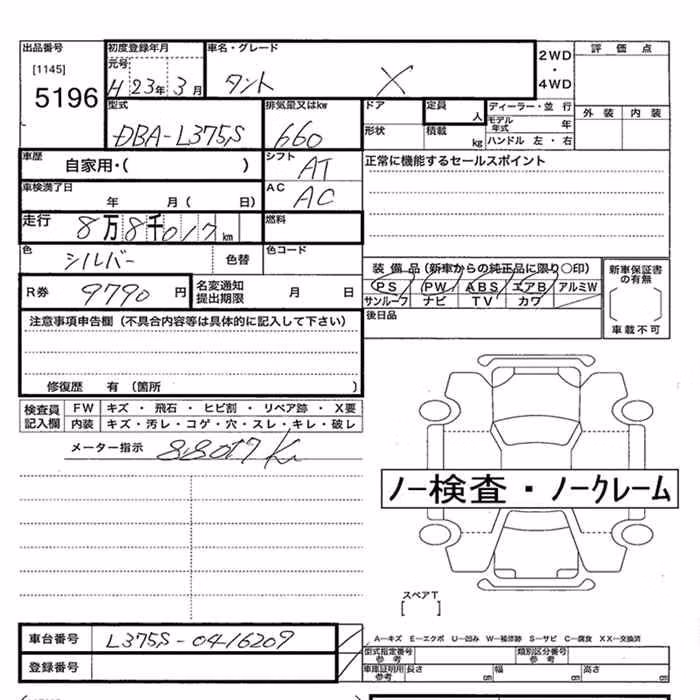 出品番号 初度登録年月 車名・グレード 2WD 評価点
[1145] 元号 ・
5196 H 23年 3月 タント X 4WD
型式 排気量又はkw ドア 定員 人 ディーラー・並 行 外装 内装
DBA-L375S 660 形状 積載 kg モデル年式 年
ハンドル 左・右
車歴 自家用・( ) シフト AT 正常に機能するセールスポイント
車検満了日 年 月( 日) AC AC
走行 8万8千017km 燃料
色 シルバー 色替 色コード
装備品(新車からの純正品に限り○印) 新車保証書の有無
R券 9790円 名変通知提出期限 月 日 PS PW ABS エアB アルミW
サンルーフ ナビ TV カワ 車載不可
注意事項申告欄(不具合内容等は具体的に記入して下さい) 後日品
修復歴 有(箇所 )
検査員記入欄 FW キズ・飛石・ヒビ割・リペア跡・X要
内装 キズ・汚レ・コゲ・穴・スレ・キレ・破レ
メーター指示 88017K
ノー検査・ノークレーム
スペアT
[ ]
車台番号 L375S-0416209 A-キズ E-エクボ U-凹み W-補修跡 S-サビ C-腐食 XX-交換済
型式指定番号 参考 類別区分番号 参考
登録番号 車庫証明用 参考 長さ cm 幅 cm 高さ cm